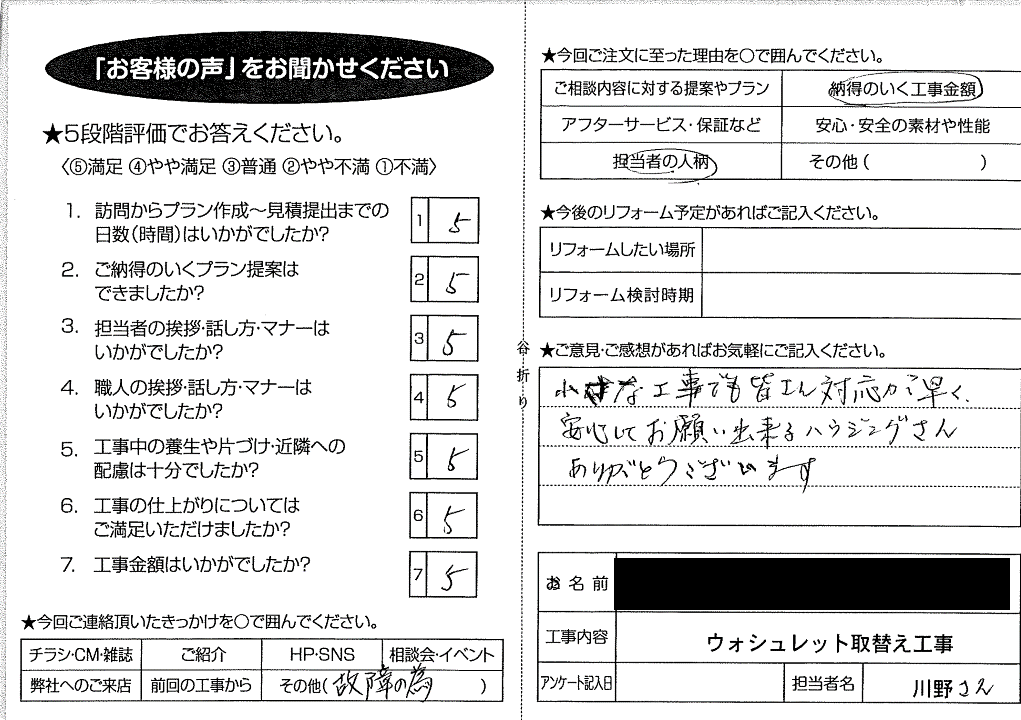 「お客様の声」をお聞かせください
★5段階評価でお答えください。
〈⑤満足 ④やや満足 ③普通 ②やや不満 ①不満〉
1. 訪問からプラン作成〜見積提出までの
日数(時間)はいかがでしたか?
1 5
2. ご納得のいくプラン提案は
できましたか?
2 5
3. 担当者の挨拶・話し方・マナーは
いかがでしたか?
3 5
4. 職人の挨拶・話し方・マナーは
いかがでしたか?
4 5
5. 工事中の養生や片づけ・近隣への
配慮は十分でしたか?
5 5
6. 工事の仕上がりについては
ご満足いただけましたか?
6 5
7. 工事金額はいかがでしたか?
7 5
★今回ご連絡頂いたきっかけを○で囲んでください。
チラシ・CM・雑誌 ご紹介 HP・SNS 相談会・イベント
弊社へのご来店 前回の工事から その他(故障の為)
谷折り
★今回ご注文に至った理由を○で囲んでください。
ご相談内容に対する提案やプラン 納得のいく工事金額
アフターサービス・保証など 安心・安全の素材や性能
担当者の人柄 その他( )
★今後のリフォーム予定があればご記入ください。
リフォームしたい場所
リフォーム検討時期
★ご意見・ご感想があればお気軽にご記入ください。
小さな工事でも皆さん対応が早く、
安心してお願い出来るハウジングさん
ありがとうございます
お名前
工事内容 ウォシュレット取替え工事
アンケート記入日 担当者名 川野さん